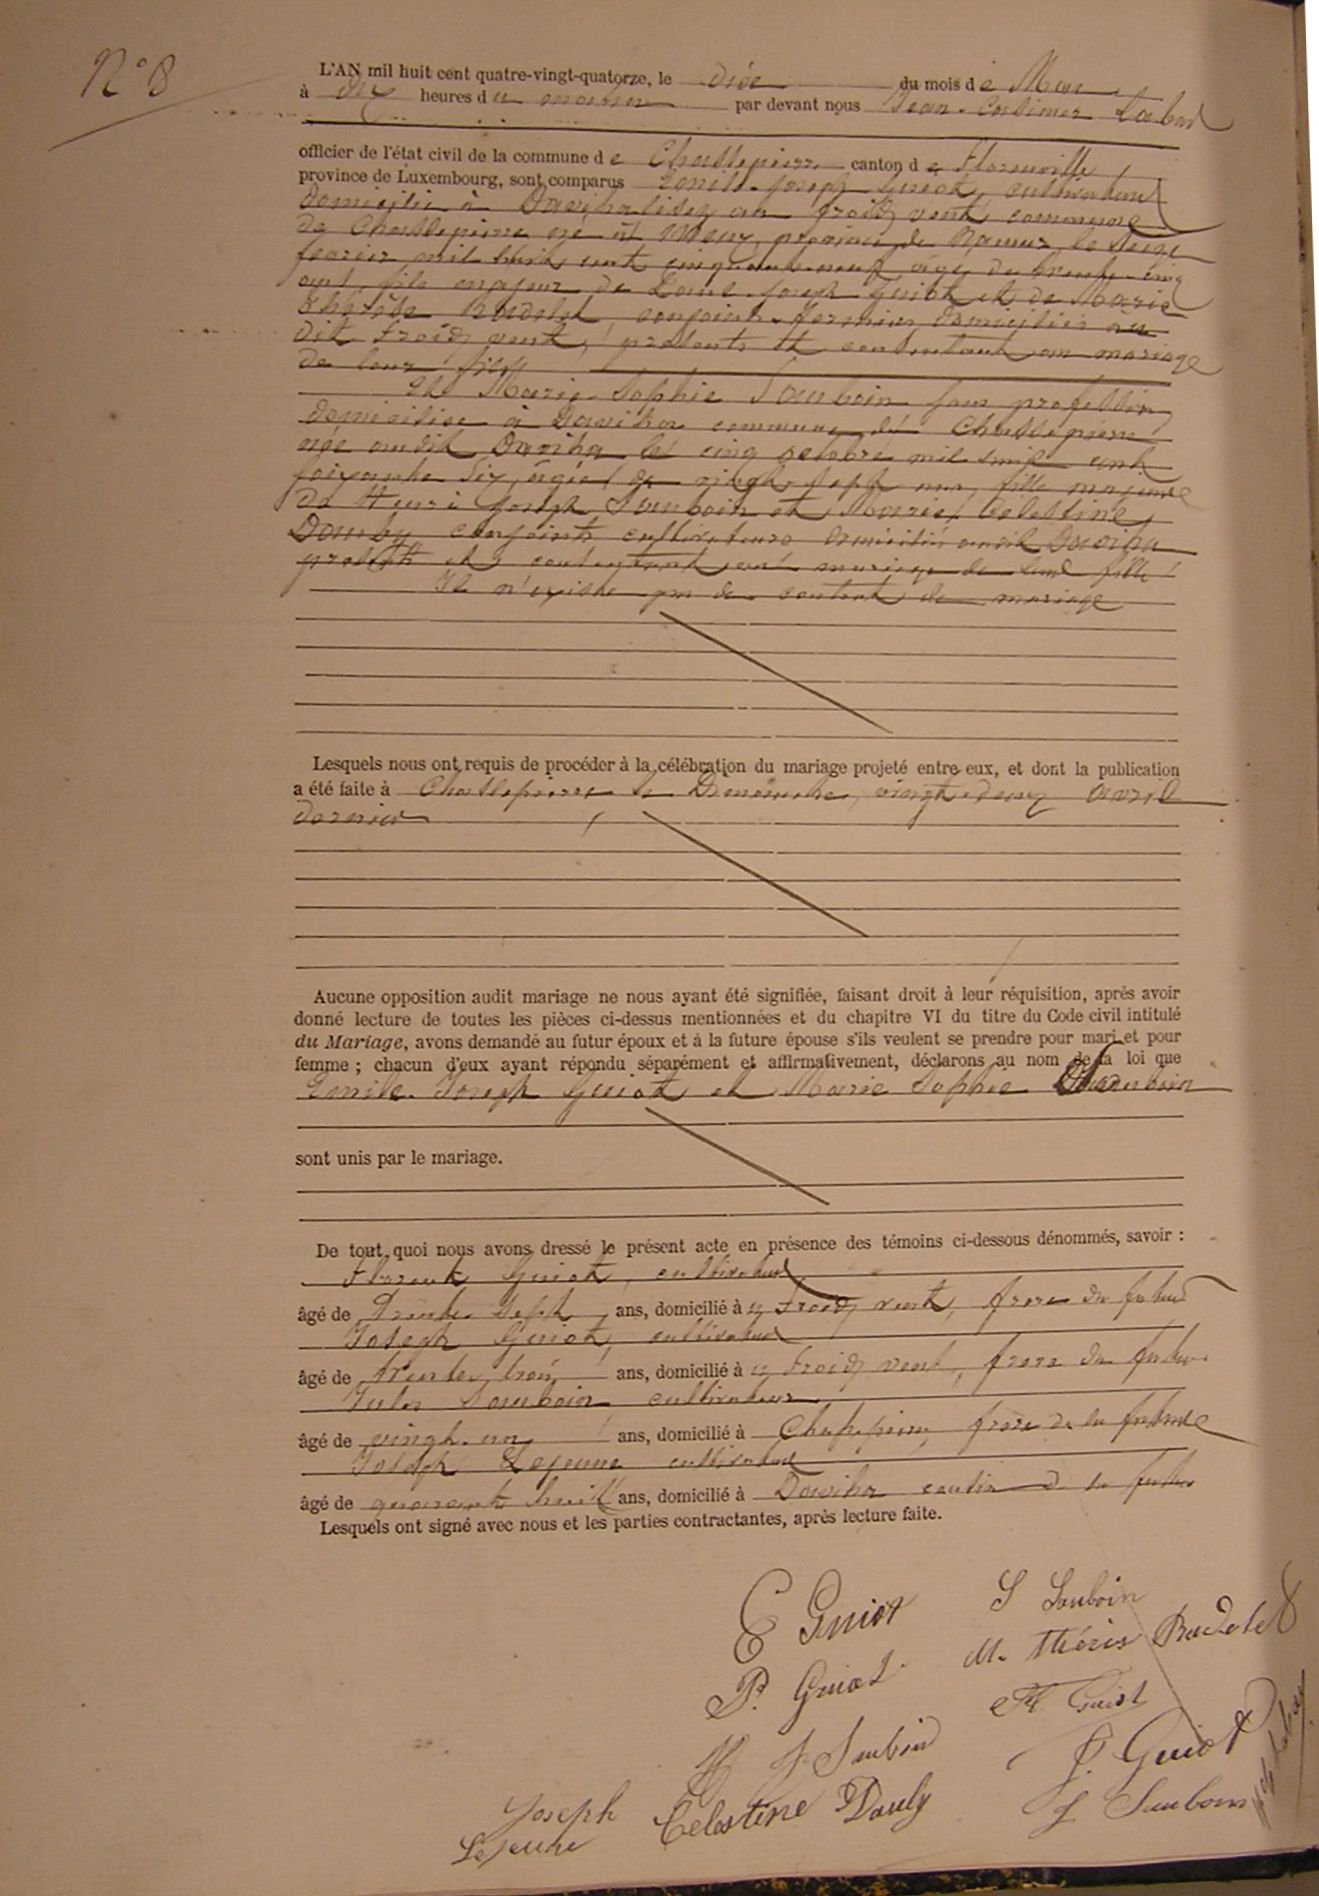 N° 8
L'AN mil huit cent quatre-vingt-quatorze, le dix du mois de Mai
à dix heures du matin par devant nous Jean-
officier de l'état civil de la commune de Chassepierre canton de Florenville
province de Luxembourg, sont comparus Emile-Joseph Guiot, cultivateur
domicilié à froid vent commune
de Chassepierre né à province de Namur le seize
fevrier mil huit cent cinquante-neuf âgé de trente-cinq
ans, fils majeur de Joseph Guiot et de Marie
Thérèse conjoints fermiers domiciliés au
dit Froid vent, présents et consentant au mariage
de leur fils
Et Marie-Sophie Sauboin sans profession
domiciliée à commune de Chassepierre
née audit le cinq octobre mil huit cent
soixante six, âgée de vingt-sept ans, fille majeure
de Henri Joseph Sauboin et Marie Celestine
conjoints cultivateurs domiciliés audit
présents et consentant au mariage de leur fille
Il n'existe pas de contrat de mariage
Lesquels nous ont requis de procéder à la célébration du mariage projeté entre eux, et dont la publication
a été faite à Chassepierre le Dimanche, vingt-deux avril
dernier
Aucune opposition audit mariage ne nous ayant été signifiée, faisant droit à leur réquisition, après avoir
donné lecture de toutes les pièces ci-dessus mentionnées et du chapitre VI du titre du Code civil intitulé
du Mariage, avons demandé au futur époux et à la future épouse s'ils veulent se prendre pour mari et pour
femme ; chacun d'eux ayant répondu séparément et affirmativement, déclarons au nom de la loi que
Emile-Joseph Guiot et Marie Sophie Sauboin
sont unis par le mariage.
De tout quoi nous avons dressé le présent acte en présence des témoins ci-dessous dénommés, savoir :
Florent Guiot, cultivateur
âgé de Trente sept ans, domicilié à Froid vent, frère du futur
Joseph Guiot, cultivateur
âgé de trente trois ans, domicilié à Froid vent, frère du futur
Jules Sauboin cultivateur
âgé de vingt-un ans, domicilié à Chassepierre, frère de la future
Joseph Lejeune cultivateur
âgé de quarante huit ans, domicilié à cousin de la future
Lesquels ont signé avec nous et les parties contractantes, après lecture faite.
E Guiot
S Sauboin
P. Guiot
M. Thérèse
Fl. Guiot
H J Sauboin
J. Guiot
Joseph
Lejeune
Celestine
J Sauboin